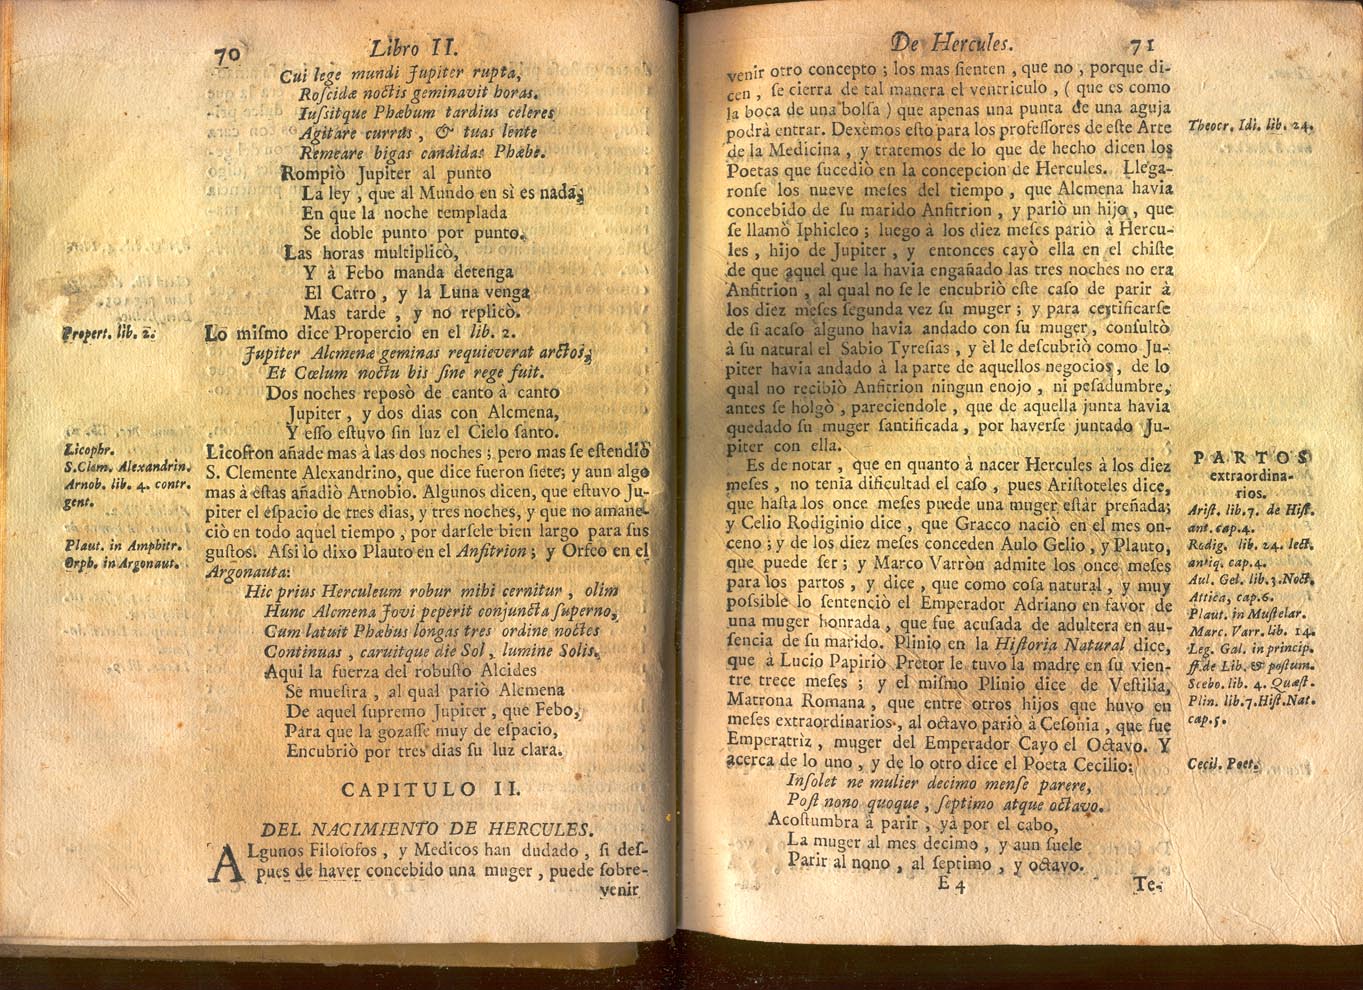 70 Libro II.
Cui lege mundi Jupiter rupta,
Roſcidæ noctis geminavit horas.
Iuſſitque Phæbum tardius celeres
Agitare currus, & tuas lente
Remeare bigas candidas Phæbe.
Rompiò Jupiter al punto
La ley, que al Mundo en sì es nada,
En que la noche templada
Se doble punto por punto.
Las horas multiplicò,
Y à Febo manda detenga
El Carro, y la Luna venga
Mas tarde, y no replicò.
Propert. lib. 2.
Lo miſmo dice Propercio en el lib. 2.
Jupiter Alcmenæ geminas requieverat arctos,
Et Cœlum noctu bis ſine rege fuit.
Dos noches reposò de canto à canto
Jupiter, y dos dias con Alcmena,
Y eſſo eſtuvo ſin luz el Cielo ſanto.
Licophr.
S. Clem. Alexandrin.
Arnob. lib. 4. contr.
gent.
Plaut. in Amphitr.
Orph. in Argonaut.
Licofron añade mas à las dos noches; pero mas ſe eſtendiò
S. Clemente Alexandrino, que dice fueron ſiete; y aun algo
mas à eſtas añadiò Arnobio. Algunos dicen, que eſtuvo Ju-
piter el eſpacio de tres dias, y tres noches, y que no amane-
ciò en todo aquel tiempo, por darſele bien largo para ſus
guſtos. Aſſi lo dixo Plauto en el Anfitrion; y Orfeo en el
Argonauta:
Hic prius Herculeum robur mihi cernitur, olim
Hunc Alcmena Jovi peperit conjuncta ſuperno,
Cum latuit Phæbus longas tres ordine noctes
Continuas, caruitque die Sol, lumine Solis.
Aqui la fuerza del robuſto Alcides
Se mueſtra, al qual pariò Alcmena
De aquel ſupremo Jupiter, que Febo,
Para que la gozaſſe muy de eſpacio,
Encubriò por tres dias ſu luz clara.
CAPITULO II.
DEL NACIMIENTO DE HERCULES.
ALgunos Filoſofos, y Medicos han dudado, ſi deſ-
pues de haver concebido una muger, puede ſobre-
venir
De Hercules. 71
venir otro concepto; los mas ſienten, que no, porque di-
cen, ſe cierra de tal manera el ventriculo, (que es como
la boca de una bolſa) que apenas una punta de una aguja
podrà entrar. Dexèmos eſto para los profeſſores de eſte Arte
de la Medicina, y tratemos de lo que de hecho dicen los
Poetas que ſucediò en la concepcion de Hercules. Llega-
ronſe los nueve meſes del tiempo, que Alcmena havia
concebido de ſu marido Anfitrion, y pariò un hijo, que
ſe llamò Iphicleo; luego à los diez meſes pariò à Hercu-
les, hijo de Jupiter, y entonces cayò ella en el chiſte
de que aquel que la havia engañado las tres noches no era
Anfitrion, al qual no ſe le encubriò eſte caſo de parir à
los diez meſes ſegunda vez ſu muger; y para certificarſe
de ſi acaſo alguno havia andado con ſu muger, conſultò
à ſu natural el Sabio Tyreſias, y èl le deſcubriò como Ju-
piter havia andado à la parte de aquellos negocios, de lo
qual no recibiò Anfitrion ningun enojo, ni peſadumbre,
antes ſe holgò, pareciendole, que de aquella junta havia
quedado ſu muger ſantificada, por haverſe juntado Ju-
piter con ella.
Es de notar, que en quanto à nacer Hercules à los diez
meſes, no tenia dificultad el caſo, pues Ariſtoteles dice,
que haſta los once meſes puede una muger eſtàr preñada;
y Celio Rodiginio dice, que Gracco naciò en el mes on-
ceno; y de los diez meſes conceden Aulo Gelio, y Plauto,
que puede ſer; y Marco Varròn admite los once meſes
para los partos, y dice, que como coſa natural, y muy
poſsible lo ſentenciò el Emperador Adriano en favor de
una muger honrada, que fue acuſada de adultera en au-
ſencia de ſu marido. Plinio en la Hiſtoria Natural dice,
que à Lucio Papiriò Pretor le tuvo la madre en ſu vien-
tre trece meſes; y el miſmo Plinio dice de Veſtilia,
Matrona Romana, que entre otros hijos que huvo en
meſes extraordinarios, al octavo pariò à Ceſonia, que fue
Emperatriz, muger del Emperador Cayo el Octavo. Y
acerca de lo uno, y de lo otro dice el Poeta Cecilio:
Inſolet ne mulier decimo menſe parere,
Poſt nono quoque, ſeptimo atque octavo.
Acoſtumbra à parir, yà por el cabo,
La muger al mes decimo, y aun ſuele
Parir al nono, al ſeptimo, y octavo.
E 4 Te-
Theocr. Idi. lib. 24.
PARTOS
extraordina-
rios.
Ariſt. lib. 7. de Hiſt.
ant. cap. 4.
Rodig. lib. 24. lect.
antiq. cap. 4.
Aul. Gel. lib. 3. Noct.
Atticæ, cap. 6.
Plaut. in Muſtelar.
Marc. Varr. lib. 14.
Leg. Gal. in princip.
ff. de Lib. & poſtum.
Scebo. lib. 4. Quæſt.
Plin. lib. 7. Hiſt. Nat.
cap. 5.
Cecil. Poet.